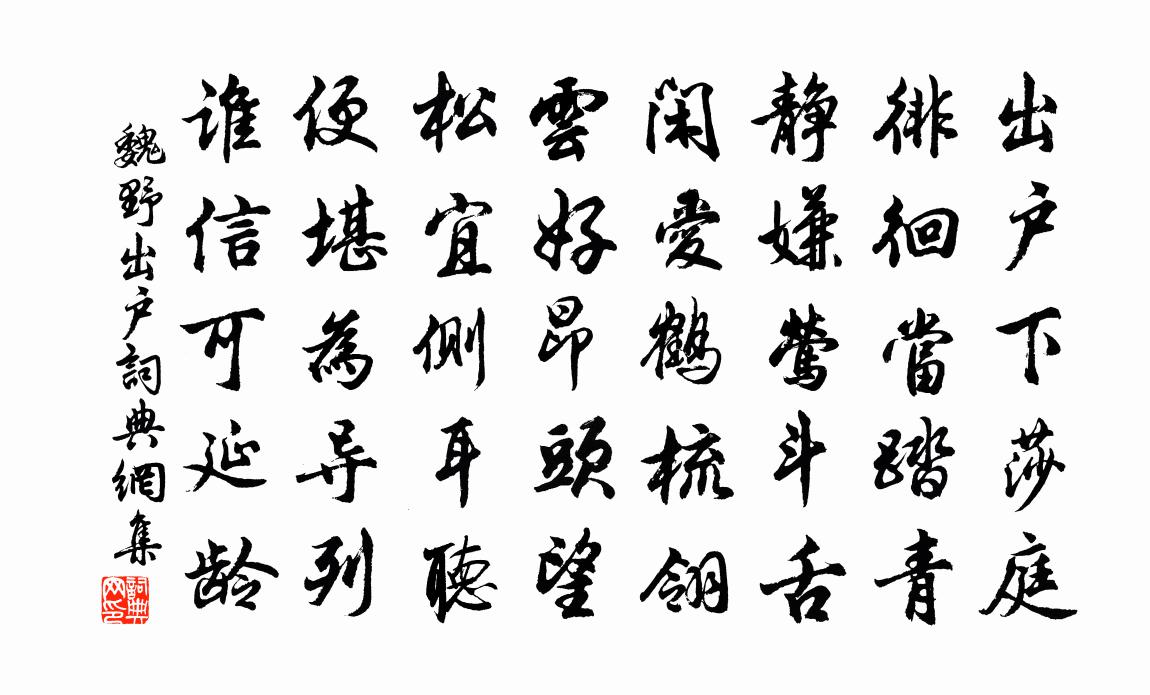 出户下莎庭
徘徊當踏青
静嫌鶯斗舌
闲愛鶴梳翎
雲好昂頭望
松宜側耳聽
便堪為导列
谁信可延龄
魏野出户詞典網集
詞典